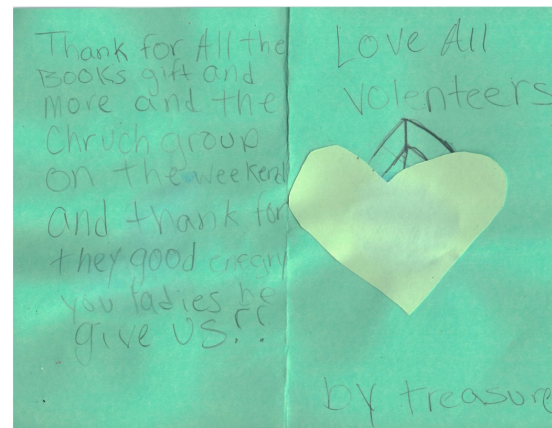 Thank for All the
Books gift and
more and the
Chruch group
on the weekend
and thank for
they good enegry
you ladies be
give US!!
Love All
volenteers
by treasure